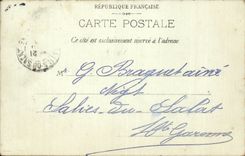 RÉPUBLIQUE FRANÇAISE
CARTE POSTALE
Ce côté est exclusivement réservé à l'adresse
M. G. Braquet aîné
Salies-du-Salat
Hte Garonne